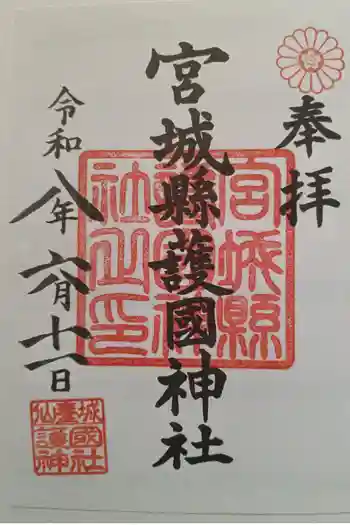 奉拝
宮城縣護國神社
令和八年六月十一日
宮城縣
社之印
仙臺城
護國
神社